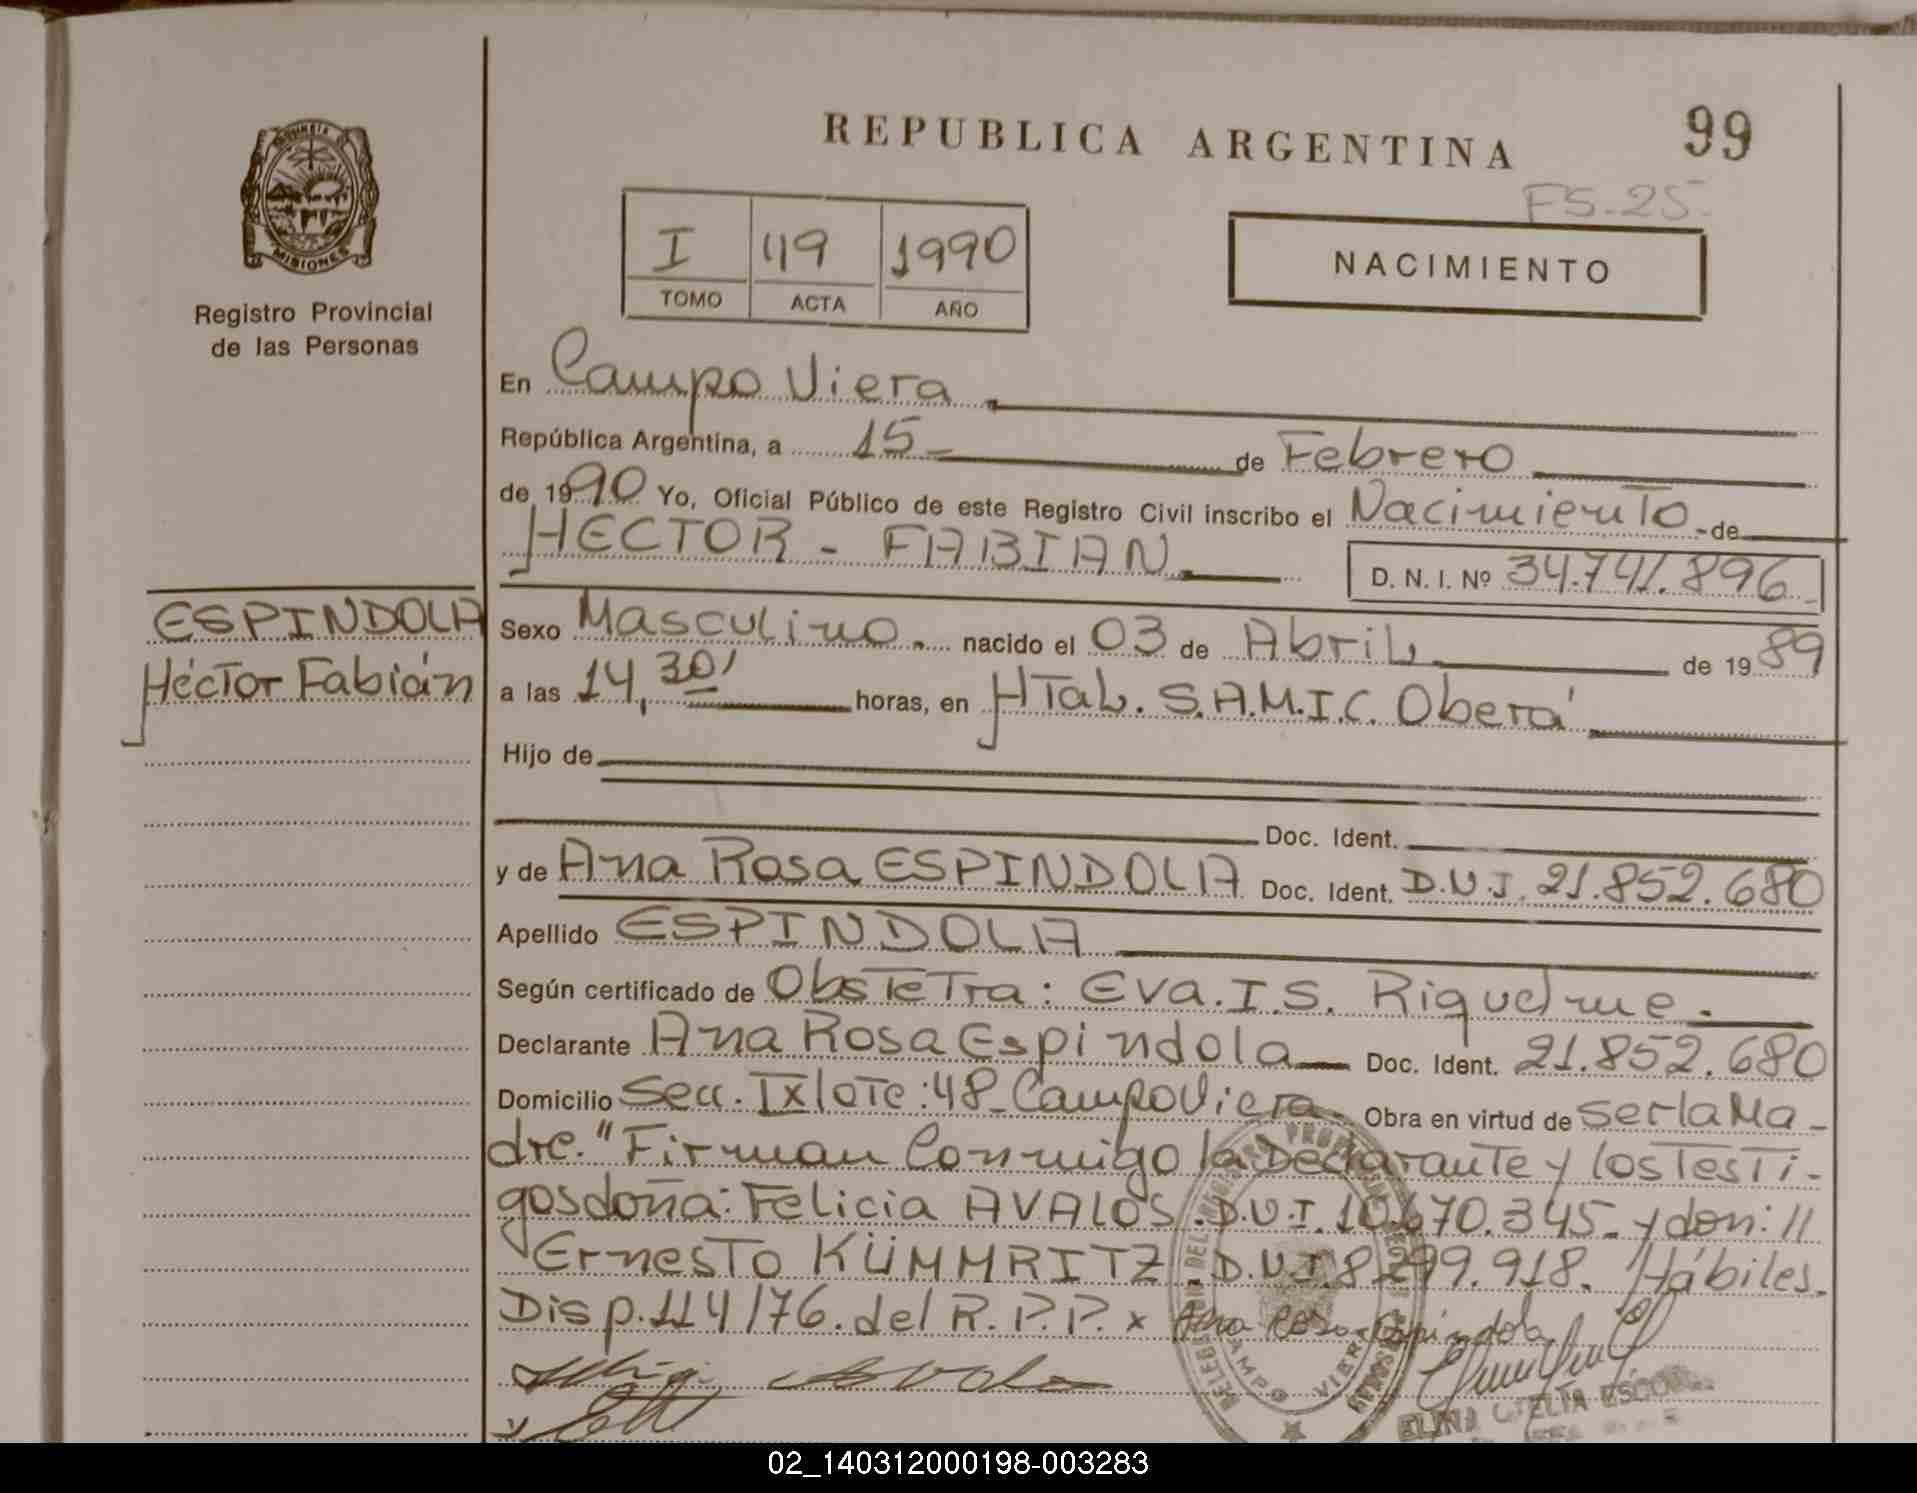 REPUBLICA ARGENTINA
99
FS-25-
PROVINCIA
MISIONES
Registro Provincial
de las Personas
I 49 1990
TOMO ACTA AÑO
NACIMIENTO
En Campo Viera.
República Argentina, a 15- de Febrero
de 1990 Yo, Oficial Público de este Registro Civil inscribo el Nacimiento-de
HECTOR - FABIAN
D. N. I. Nº 34.741.896-
ESPINDOLA
Héctor Fabián
Sexo Masculino. nacido el 03 de Abril de 1989
a las 14,30' horas, en Htal. S.A.M.I.C. Oberá
Hijo de
Doc. Ident.
y de Ana Rosa ESPINDOLA Doc. Ident. D.N.I. 21.852.680
Apellido ESPINDOLA
Según certificado de Obstetra: Eva.I.S. Riquelme.
Declarante Ana Rosa Espindola Doc. Ident. 21.852.680
Domicilio Secc. IX lote:48-Campo Viera. Obra en virtud de ser la Ma-
dre." Firman Conmigo la Declarante y los Testi-
gos doña: Felicia AVALOS. D.N.I. 10.670.345- y don: //
Ernesto KÜMMRITZ. D.N.I. 8.299.918. Hábiles.
Disp. 114/76. del R.P.P. x Ana Rosa Espindola
CAMPO VIERA
02_140312000198-003283